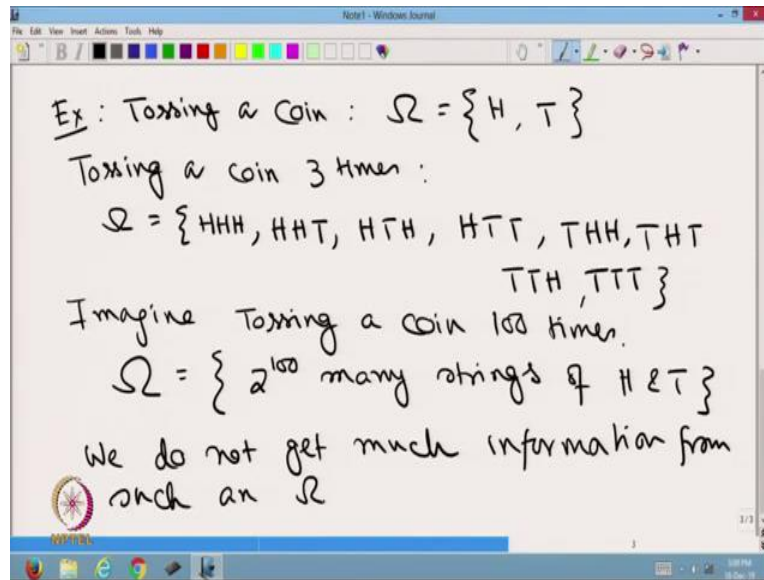 Note1 - Windows Journal
File Edit View Insert Actions Tools Help
B I
Ex : Tossing a coin : Ω = { H , T }
Tossing a coin 3 times :
Ω = { HHH, HHT, HTH, HTT, THH, THT
TTH, TTT }
Imagine Tossing a coin 100 times.
Ω = { 2^100 many strings of H & T }
We do not get much information from
such an Ω
NPTEL
3/3
3